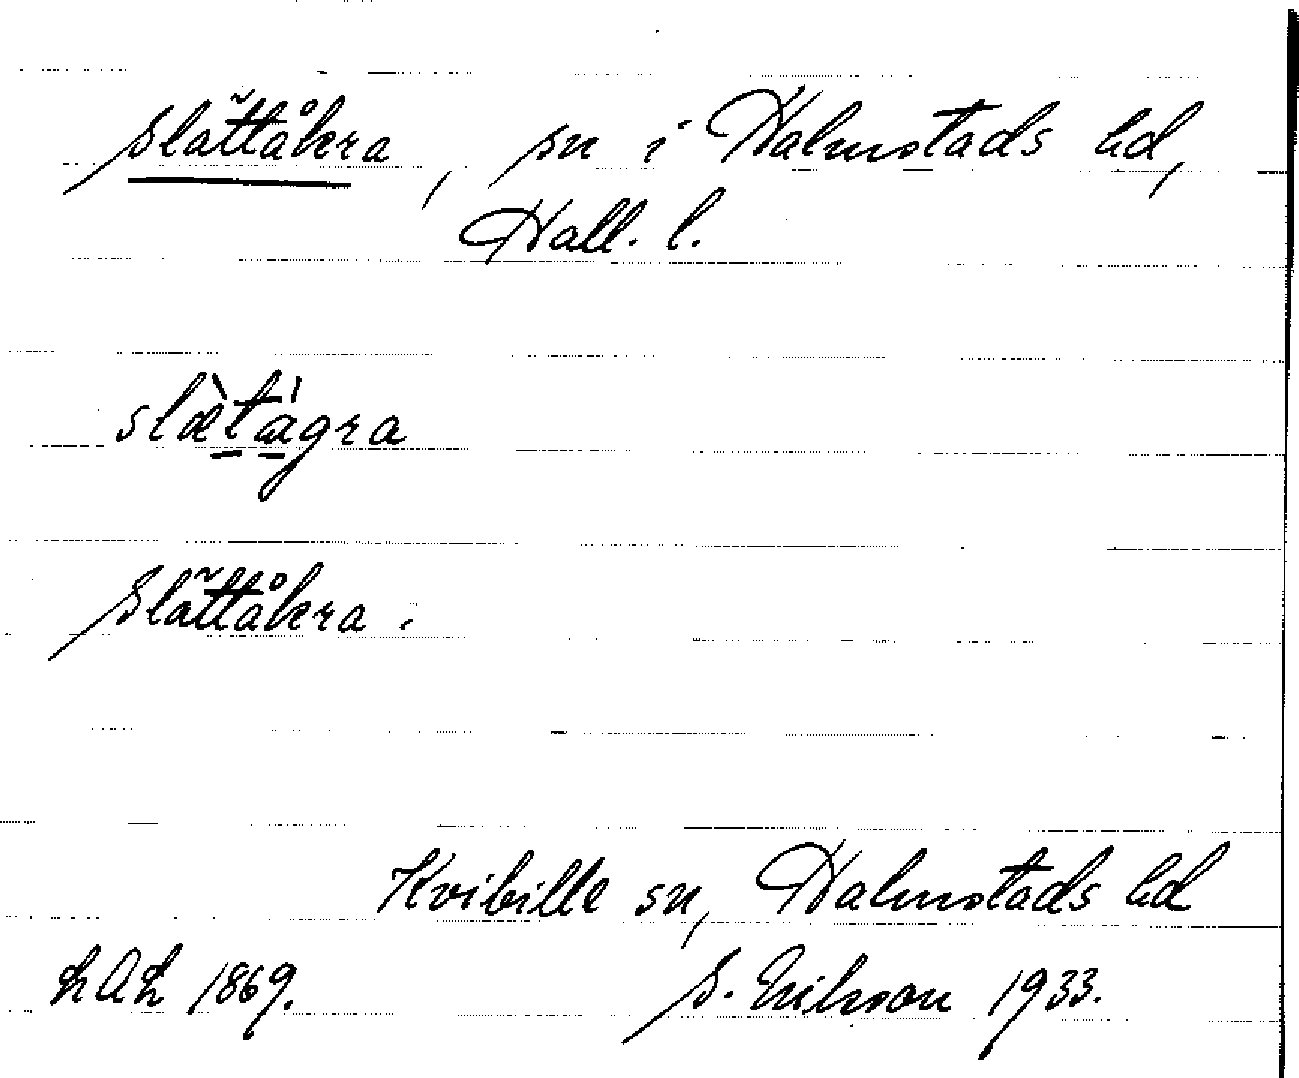 Slättåkra, sn i Halmstads hd,
Hall. l.
slæ̀tágra
Slättåkra.
Kvibille sn, Halmstads hd
1869. S. Erikson 1933.